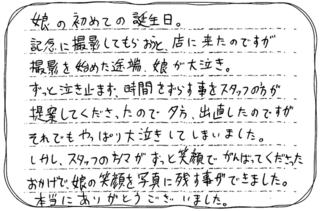 娘の初めての誕生日。
記念に撮影してもらおうと、店に来たのですが
撮影を始めた途端、娘が大泣き。
ずっと泣き止まず、時間をずらす事をスタッフの方が
提案してくださったので夕方、出直したのですが
それでもやっぱり大泣きしてしまいました。
しかし、スタッフの方々がずっと笑顔でがんばってくださった
おかげで、娘の笑顔を写真に残す事ができました。
本当にありがとうございました。